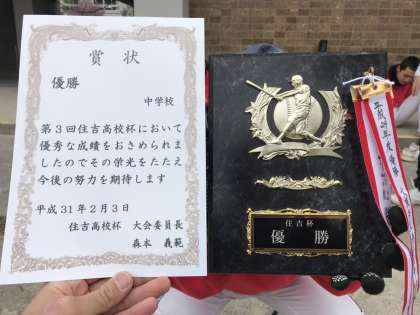 賞状
優勝
中学校
第3回住吉高校杯において
優秀な成績をおさめられまし
たのでその栄光をたたえ
今後の努力を期待します
平成31年2月3日
住吉高校杯 大会委員長
森本 義範
住吉杯
優勝